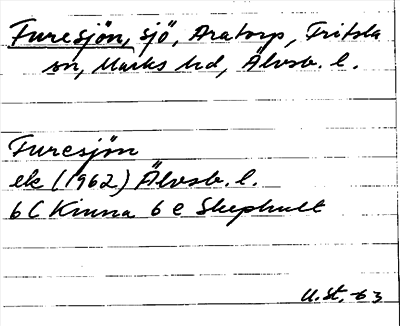 Furesjön, sjö, Aratorp, Fritsla
sn, Marks hd, Älvsb. l.
Furesjön
ek (1962) Älvsb. l.
6 C Kinna 6 e Skephult
U.St. -63